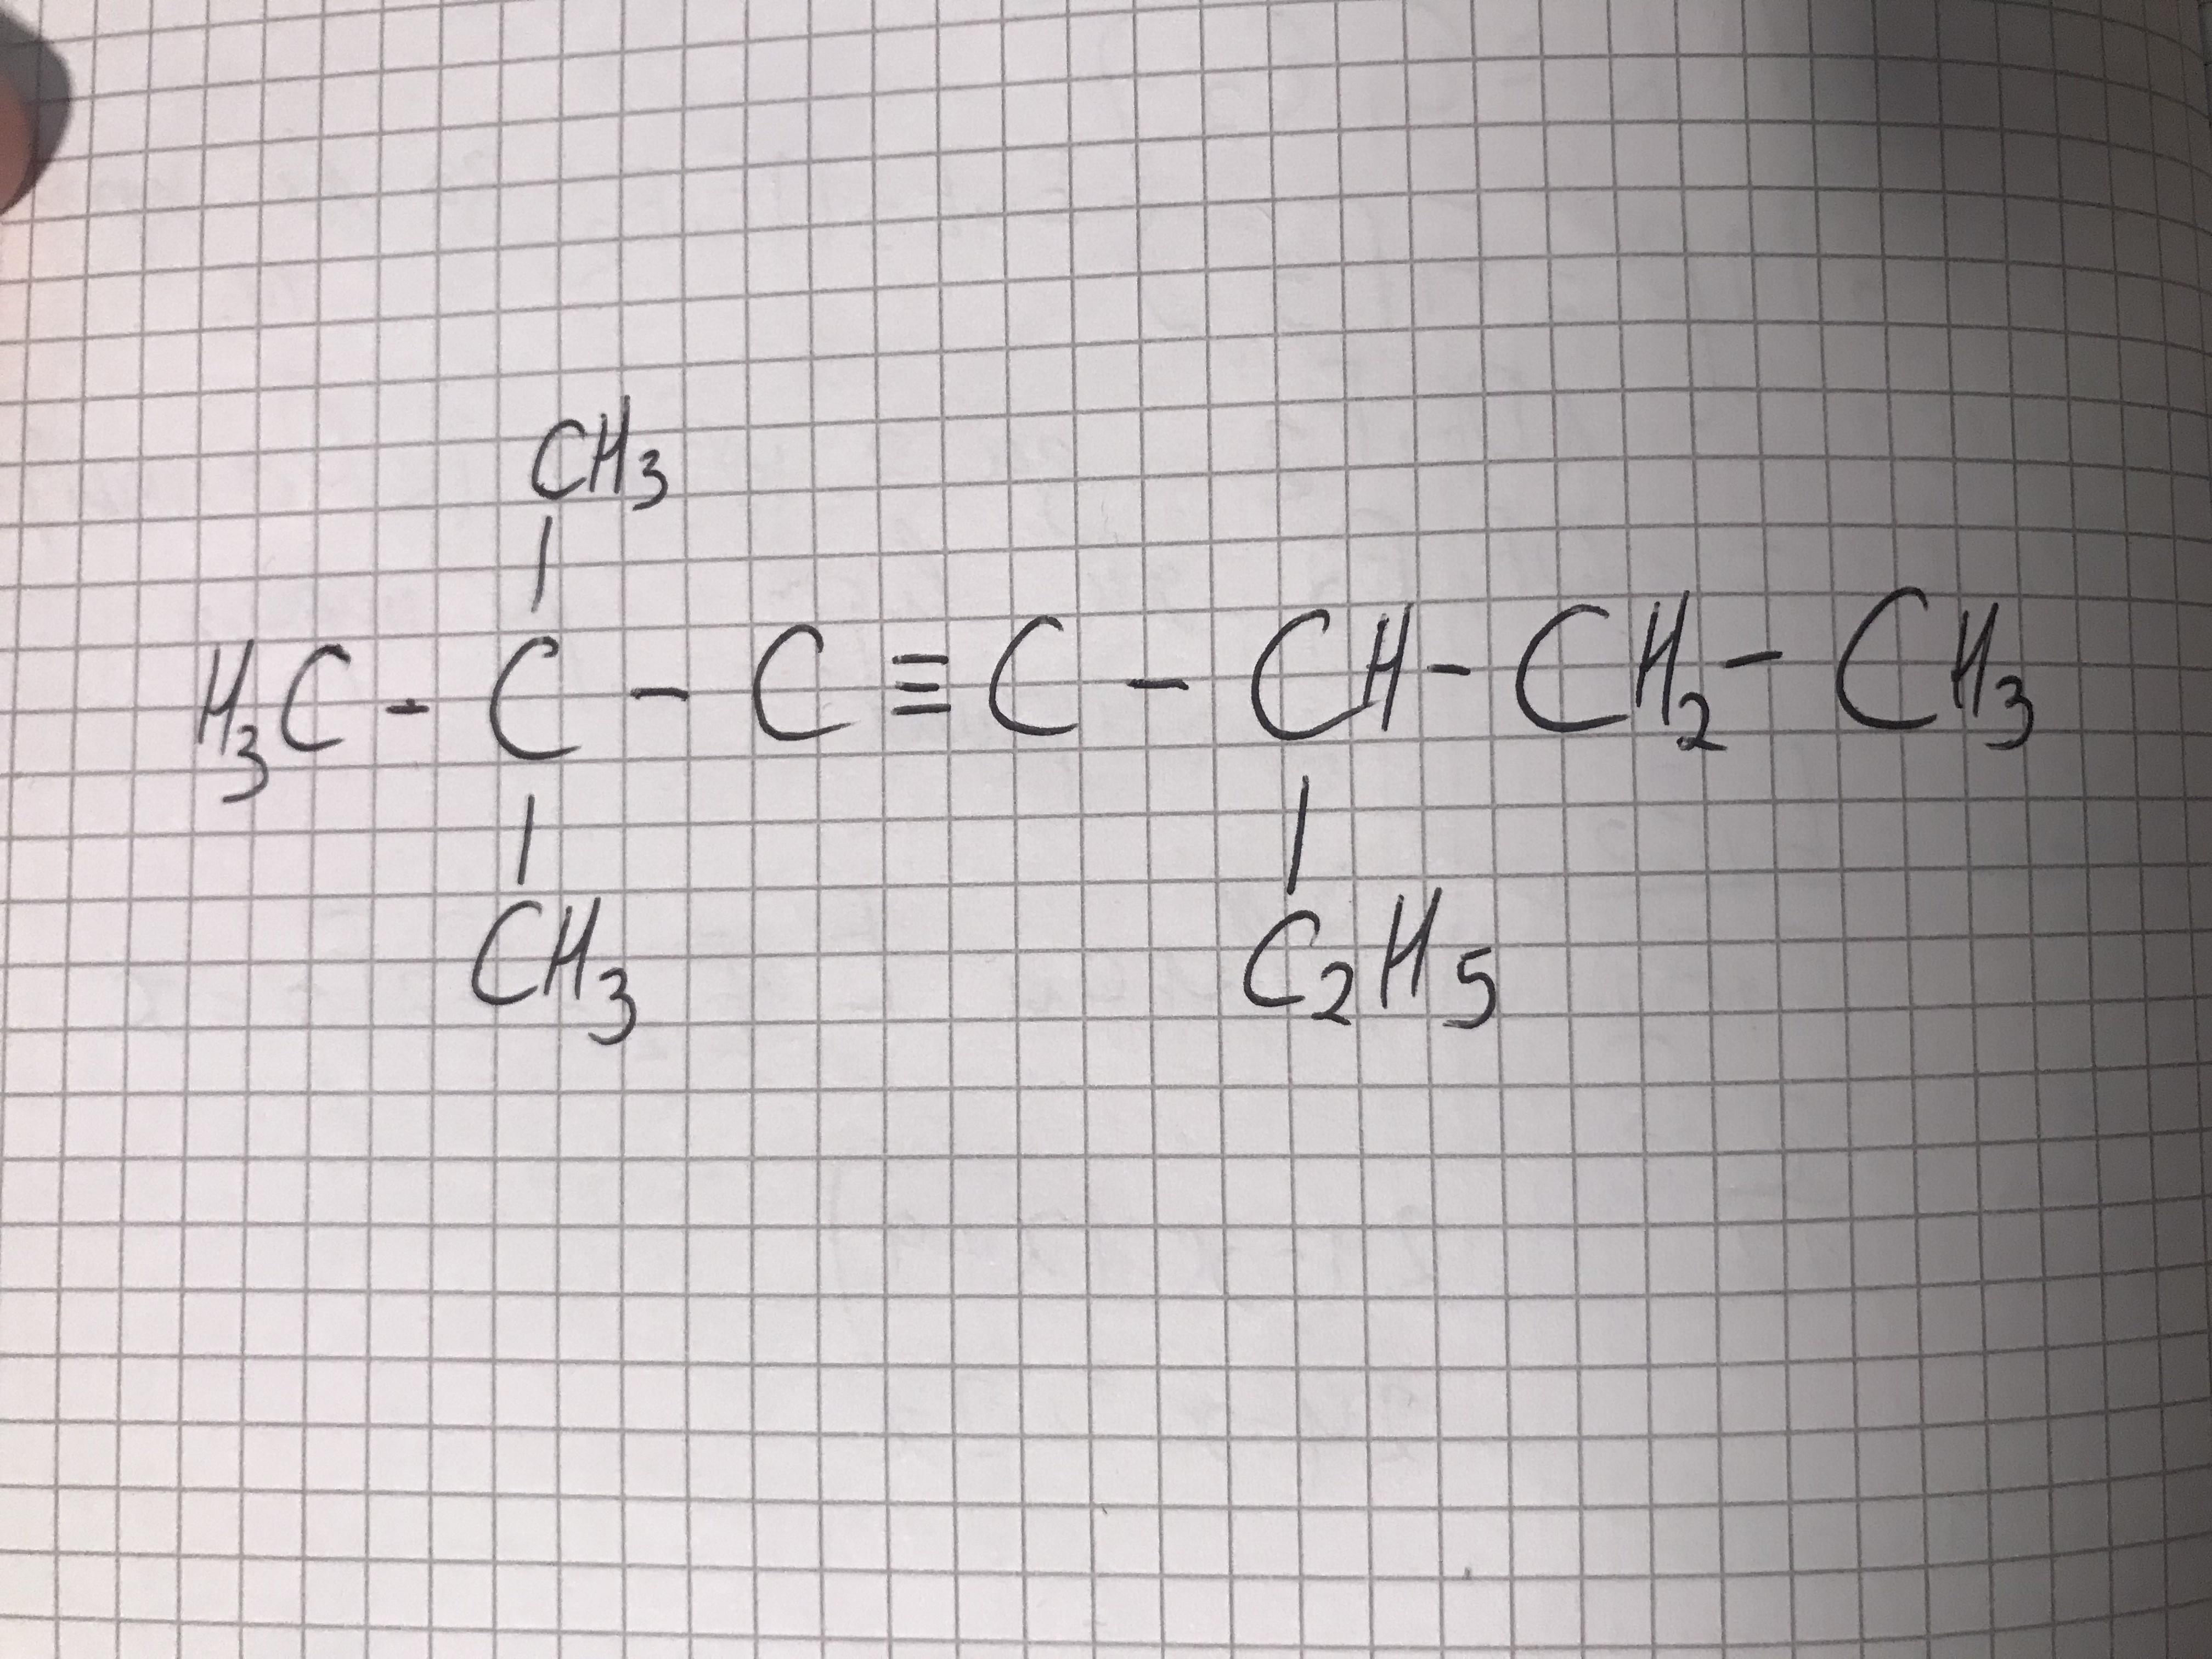 CH3
H3C - C - C ≡ C - CH - CH2 - CH3
CH3 C2H5